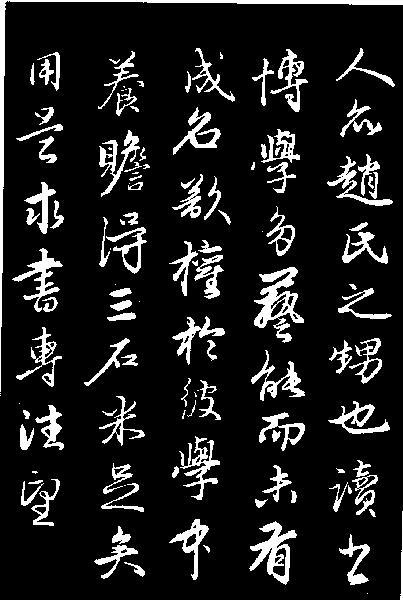 人亦趙氏之甥也讀書
博學多藝能而未有
成名欲權於彼學中
養贍得三石米足矣
用是求書專注望